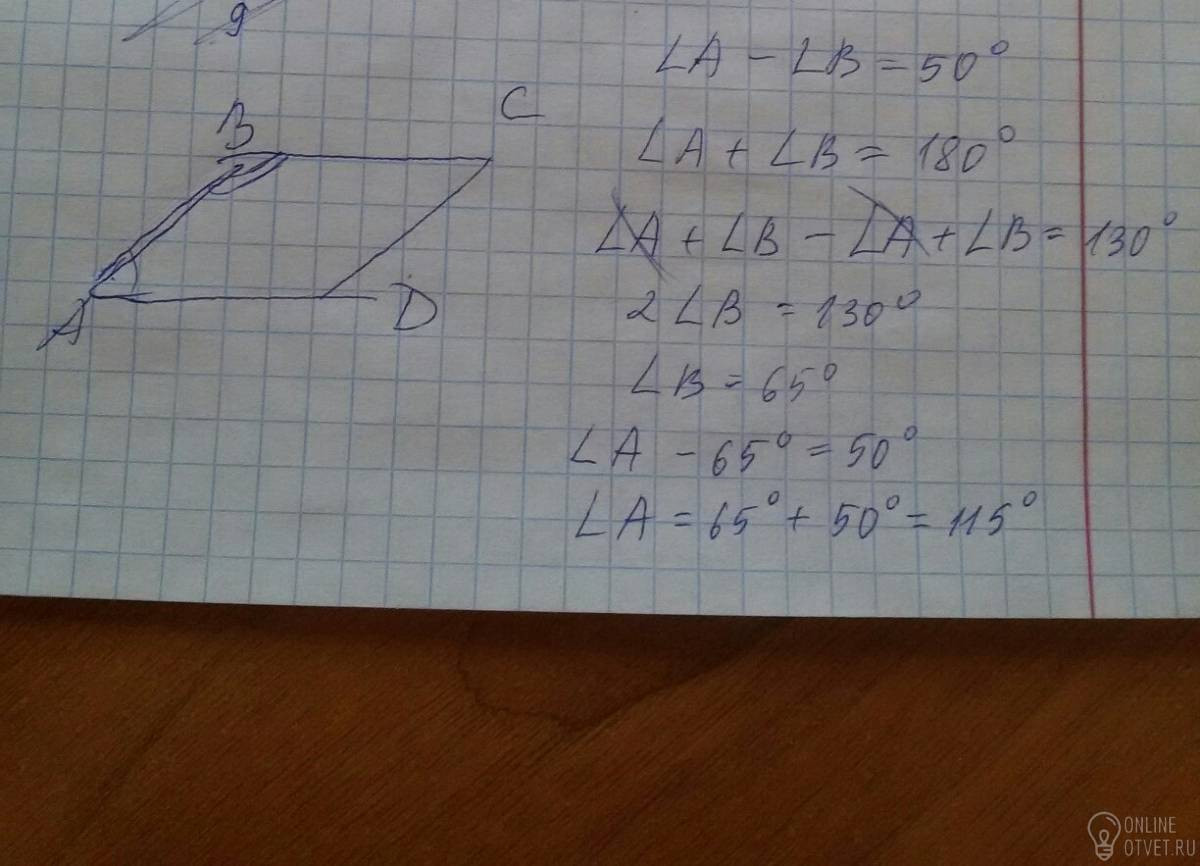 9
∠A − ∠B = 50°
B
C
∠A + ∠B = 180°
∠A + ∠B − ∠A + ∠B = 130°
A
D
2∠B = 130°
∠B = 65°
∠A − 65° = 50°
∠A = 65° + 50° = 115°
ONLINE
OTVET.RU